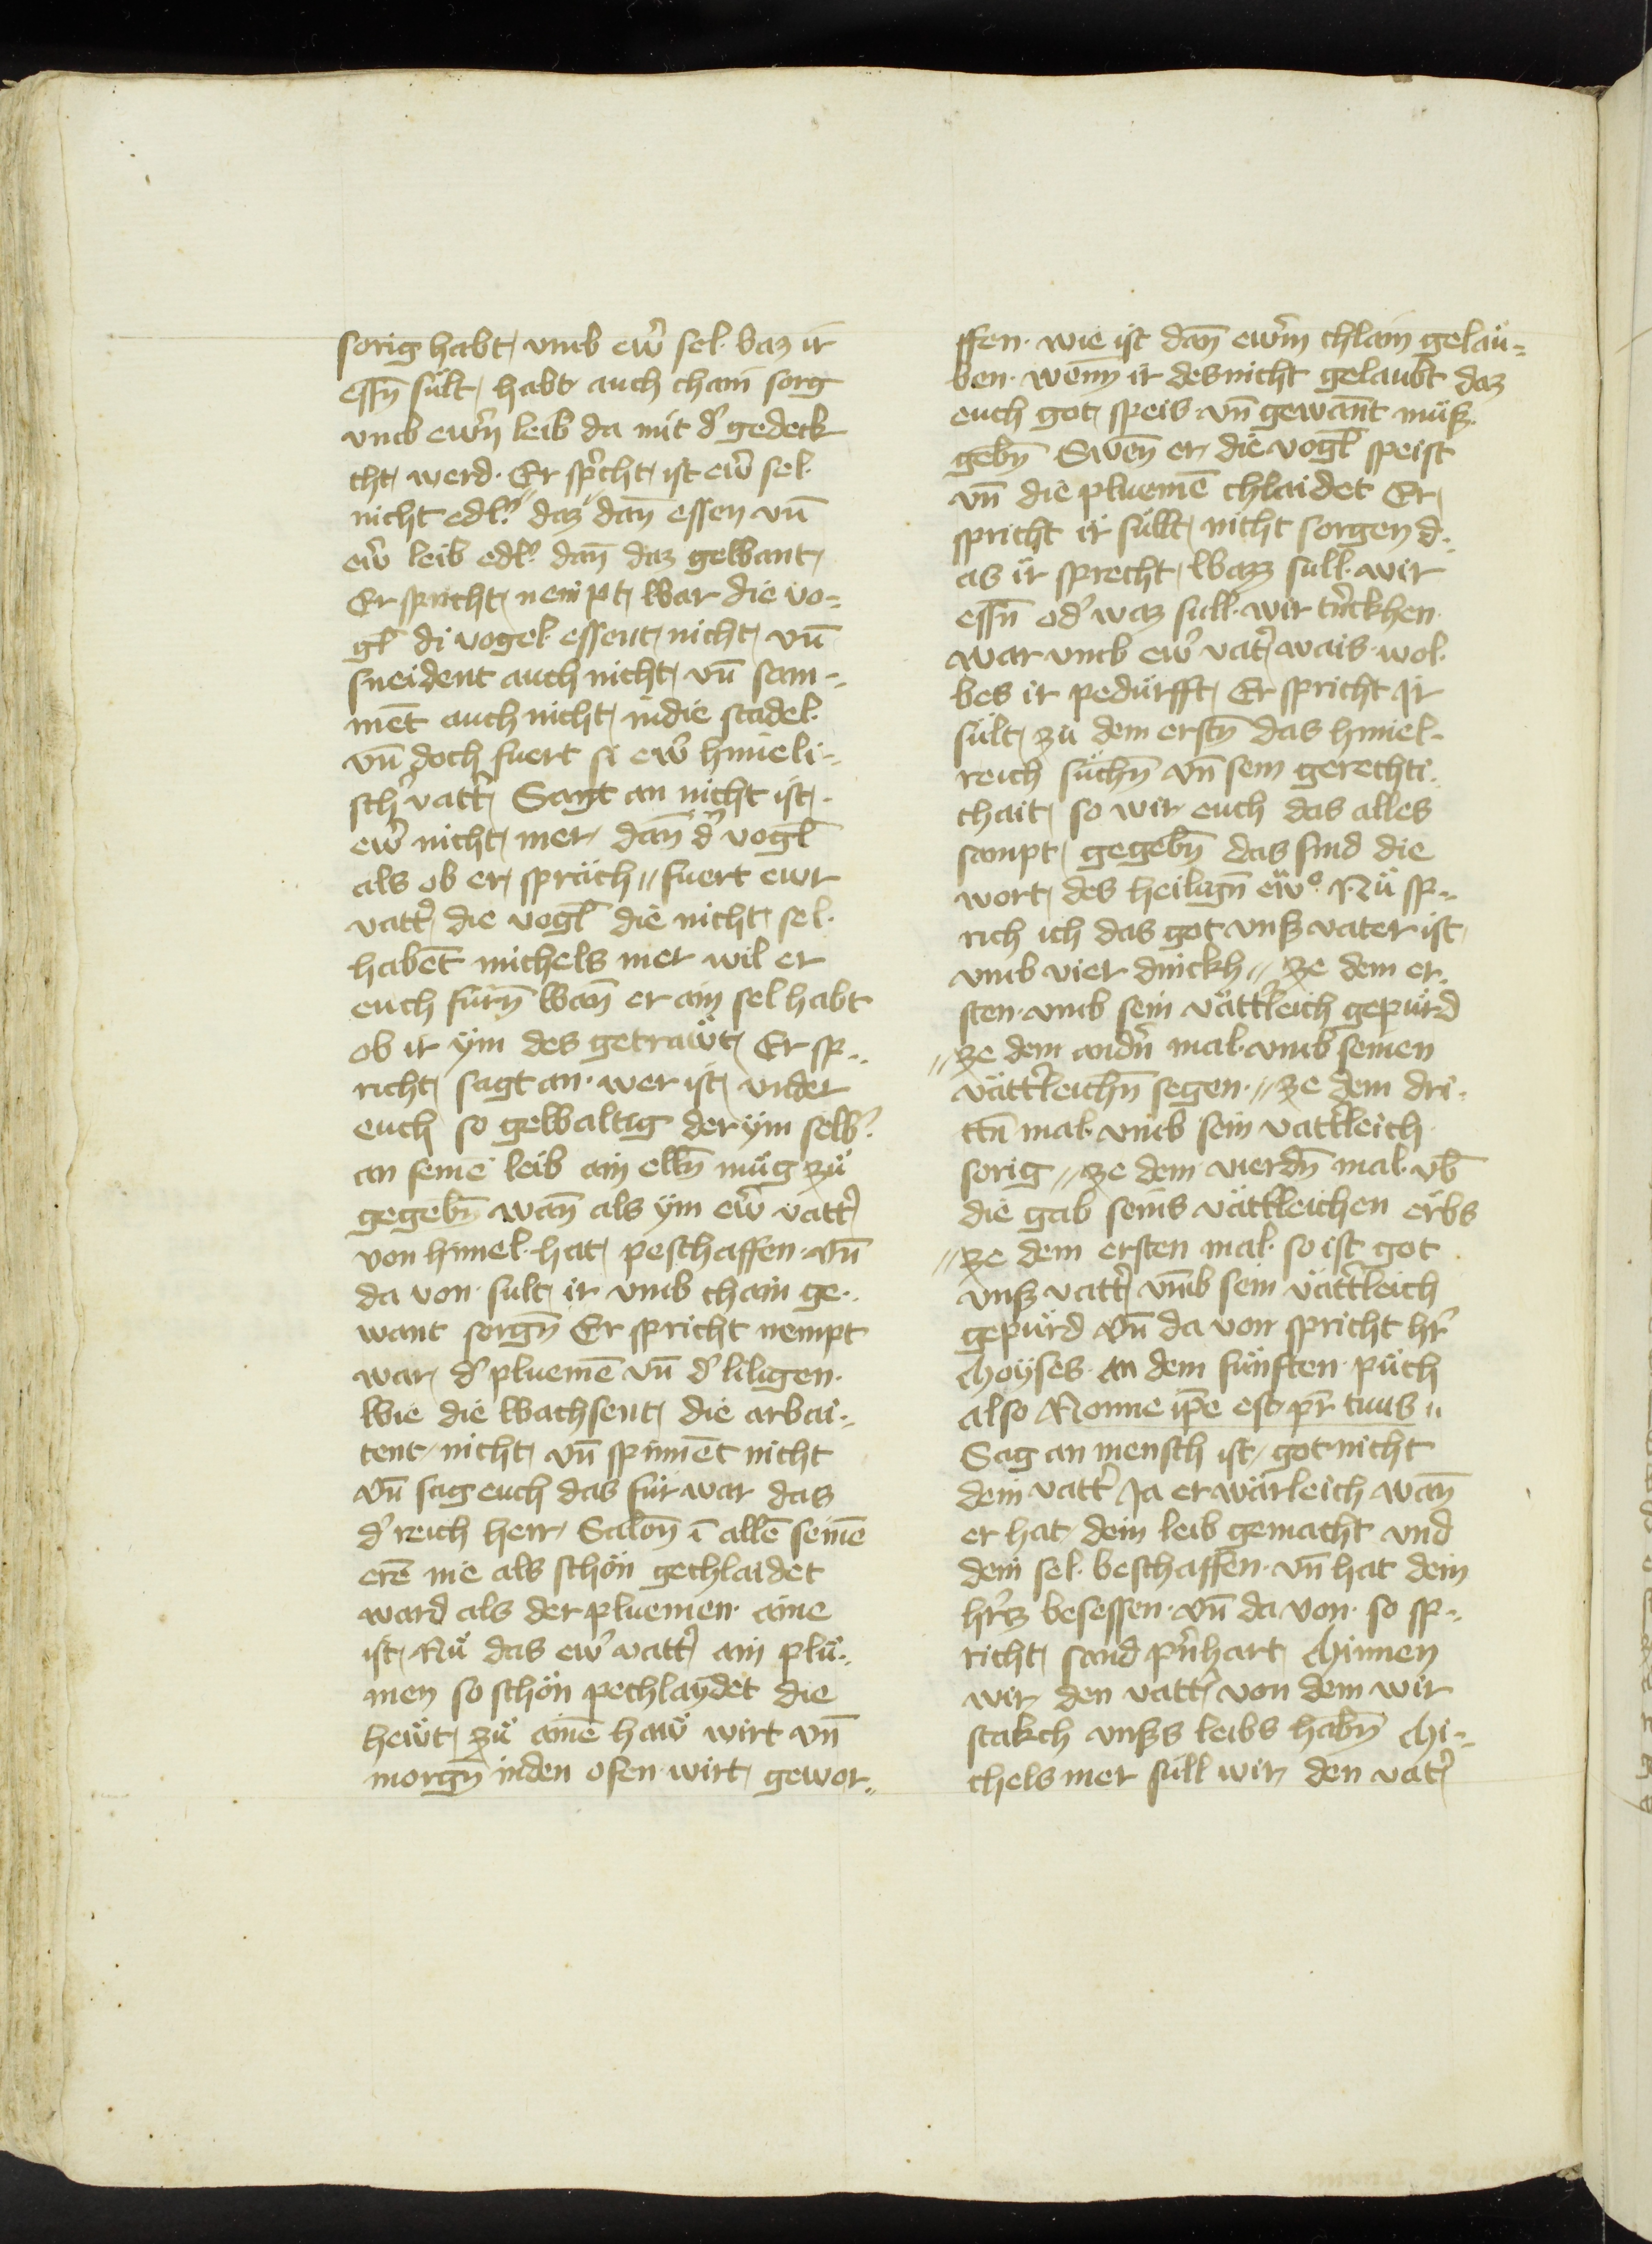 sorig habt vmb ewr̄ sel. baz ir
essn̄ sült, habt auch chain sorg
vmb ewrn̄ leib da mit d' gedeck
cht, werd. Er sp'cht, ist ewr̄ sel.
nicht edl'. daz dan̄ essen vn̄
ew' leib edl'. dan̄ daz gewant,
Er spricht, nempt, war die vo=
gl̄ di vogel essent, nicht, vn̄
sneident auch nicht, vn̄ sam=
mēt auch nicht, indie stadel.
vn̄ doch fuert si ew' himeli=
sch' vatt', Sagt an nicht ist,.
ew' nicht, mer, dan̄ d' vogl̄
als ob er, spräch, fuert ewr
vatt', die vogl̄ die nicht, sel.
habēt michels mer wil er
euch fürn̄ wan̄ er ain sel habt
ob ir ÿm des getrawt, Er sp=
richt, sagt an. wer ist, vnder
euch so gewaltig der ÿm selb'.
an seinē leib ain elln̄ müg zü
gegebn̄ wan̄ als ÿm ew' vatt'
von himel. hat, peschaffen. vn̄
da von. sult, ir vmb chain ge=
want sorgn̄ Er spricht nempt
war, d' pluemē vn̄ d' liligen.
wie die wachsent, die arbai=
tent, nicht, vn̄ spinnēt nicht
vn̄ sag euch das für war das
d' reich herr, Salon̄ ī allē seinē
erē nie als schön gechlaidet
ward als der pluemen. aine
ist, Nü das ew' vatt' ain plü=
men so schön pechlaydet die
hewt, zü ainē haw wirt vn̄
morgn̄ inden ofen. wirt, gewor=
ffen. wie ist dan̄ ewrm̄ chlain gelau=
ben. wenn ir des nicht gelaubt daz
euch got, speis. vn̄ gewant müß.
gebn̄ Swen̄ er, die vogl̄ speist
vn̄ die pluemē chlaidet Er,
spricht ir süllt, nicht sorgen d=
as ir sprecht, wazz sull. wir
essn̄ od' waz sull. wir tr'nckhen.
war vmb ew' vat', wais. wol.
bes ir pedürfft, Er spricht Ir
sült, zü dem erstn̄ das himel=
reich süchn̄ vn̄ sein gerechti=
chait, so wir euch das alles
sampt, gegebn̄ das sind die
wort, des heilign̄ ew°. Nü sp=
rich ich das got vnß vater ist,
vmb vier dinckh, ze dem er=
sten. vmb sein vättleich gepürd
ze dem andn̄ mal. vmb seinen
vättleichn̄ segen., ze dem dri=
ttn̄ mal. vmb sein vattleich
sorig, ze dem vierdn̄ mal. vb̄
die gab seins vättleichen erbs
ze dem ersten mal. so ist got
vnß vatt' vmb sein vättleich
gepürd vn̄ da von spricht hr̄
Moÿses. an dem fünften. püch
also Nonne ip̄e est. pr̄ tuus
Sag an mensch ist, got. nicht
dein vatt' Ja er wärleich wan̄
er hat, dein leib gemacht vnd
dein sel. beschaffen. vn̄ hat dein
h'tz besessen. vn̄ da von. so sp=
richt, sand p'nhart, Minnen
wir, den vatt', von dem wir
stakch vnßs leibs habn̄ Mi=
chels mer süll wir, den vat'